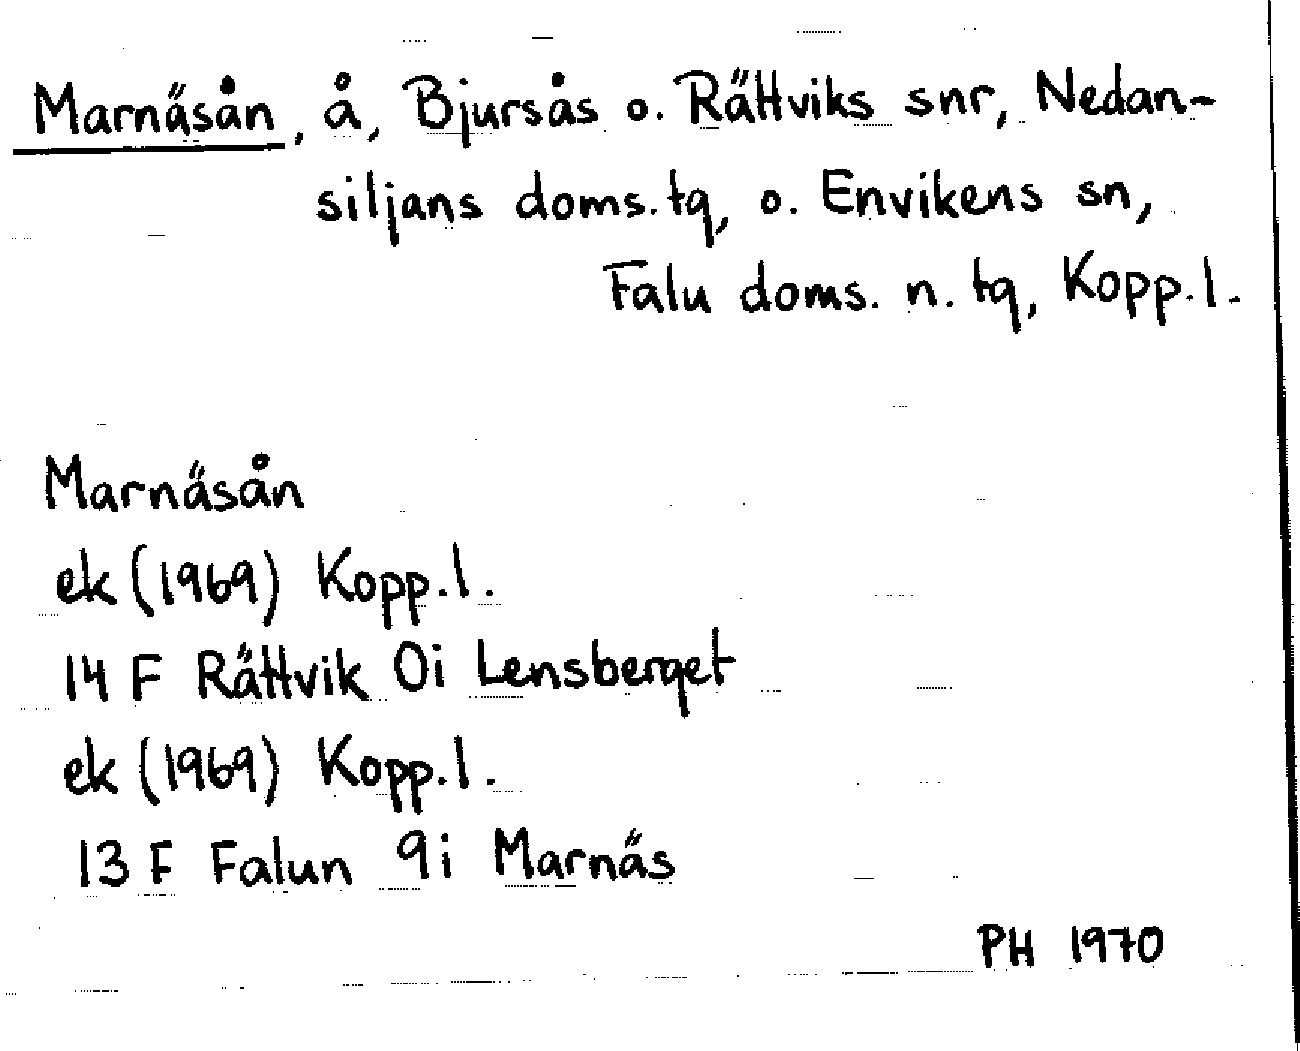 Marnäsån, å, Bjursås o. Rättviks snr, Nedan-
siljans doms.tg, o. Envikens sn,
Falu doms. n. tg, Kopp.l.
Marnäsån
ek (1969) Kopp.l.
14 F Rättvik 0i Lensberget
ek (1969) Kopp.l.
13 F Falun 9i Marnäs
PH 1970